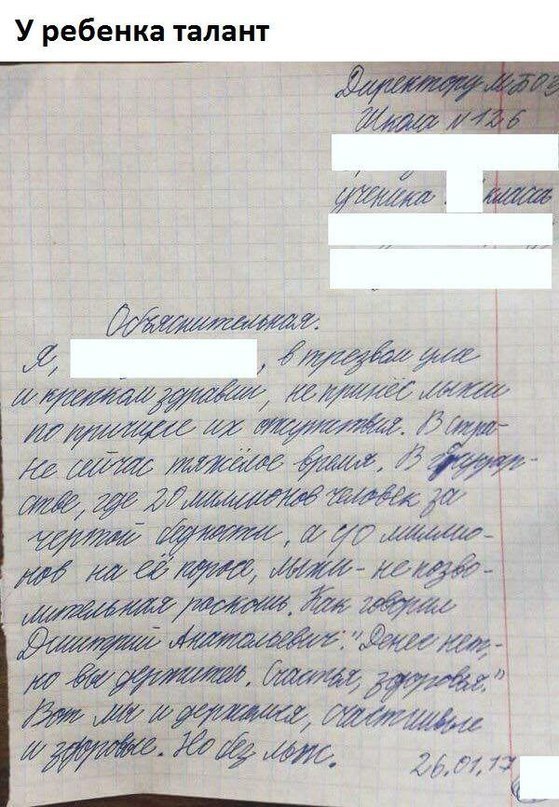 У ребенка талант
Директору МБОУ
Школа №126
ученика класса
Объяснительная.
Я, , в трезвом уме
и крепком здравии, не принёс лыжи
по причине их отсутствия. В стра-
не сейчас тяжёлое время. В
стве, где 20 миллионов человек за
чертой бедности, а 40 миллио-
нов на её пороге, лыжи - не позво-
лительная роскошь. Как говорил
Дмитрий Анатольевич: "Денег нет,
но вы держитесь. Счастья, здоровья."
Вот мы и держимся, счастливые
и здоровые. Но без лыж.
26.01.17